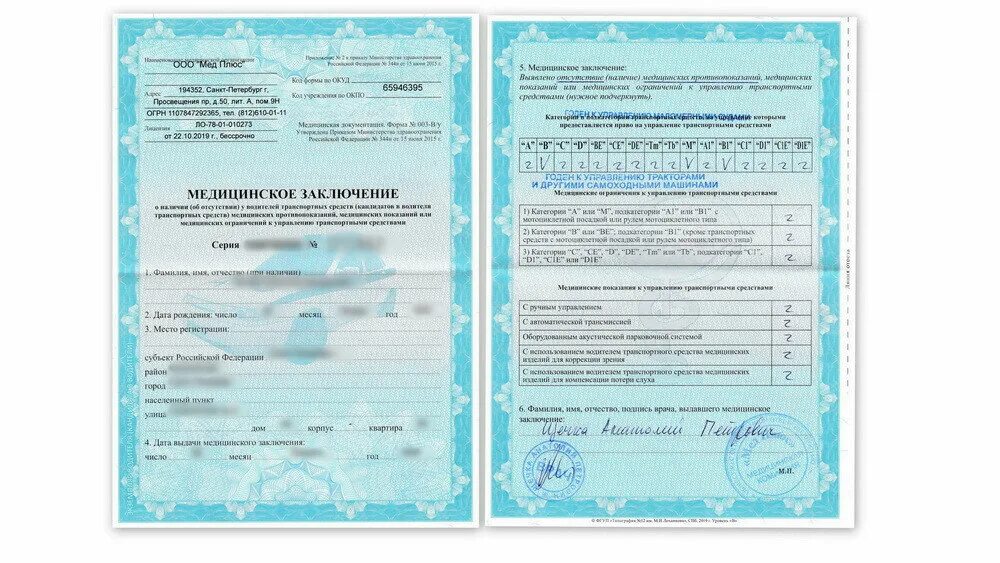 Наименование медицинской организации
ООО "Мед Плюс"
Адрес 194352, Санкт-Петербург г,
Просвещения пр, д.50, лит. А, пом.9Н
ОГРН 1107847292365, тел. (812)610-01-11
Лицензия ЛО-78-01-010273
от 22.10.2019 г., бессрочно
Приложение № 2 к приказу Министерства здравоохранения
Российской Федерации № 344н от 15 июня 2015 г.
Код формы по ОКУД
Код учреждения по ОКПО 65946395
Медицинская документация. Форма № 003-В/у
Утверждена Приказом Министерства здравоохранения
Российской Федерации № 344н от 15 июня 2015 г.
МЕДИЦИНСКОЕ ЗАКЛЮЧЕНИЕ
о наличии (об отсутствии) у водителей транспортных средств (кандидатов в водители
транспортных средств) медицинских противопоказаний, медицинских показаний или
медицинских ограничений к управлению транспортными средствами
Серия №
1. Фамилия, имя, отчество (при наличии)
2. Дата рождения: число месяц год
3. Место регистрации:
субъект Российской Федерации
район
город
населенный пункт
улица
дом корпус квартира
4. Дата выдачи медицинского заключения:
число месяц год
5. Медицинское заключение:
Выявлено отсутствие (наличие) медицинских противопоказаний, медицинских
показаний или медицинских ограничений к управлению транспортными
средствами (нужное подчеркнуть).
ГОДЕН К УПРАВЛЕНИЮ
Категории и подкатегории транспортных средств, на управление которыми
предоставляется право на управление транспортными средствами
"A" "B" "C" "D" "BE" "CE" "DE" "Tm" "Tb" "M" "A1" "B1" "C1" "D1" "C1E" "D1E"
Z V Z Z Z Z Z Z Z V Z V Z Z Z Z
ГОДЕН К УПРАВЛЕНИЮ ТРАКТОРАМИ
И ДРУГИМИ САМОХОДНЫМИ МАШИНАМИ
Медицинские ограничения к управлению транспортными средствами
1) Категории "A" или "M", подкатегории "A1" или "B1" с
мотоциклетной посадкой или рулем мотоциклетного типа Z
2) Категории "B" или "BE"; подкатегории "B1" (кроме транспортных
средств с мотоциклетной посадкой или рулем мотоциклетного типа) Z
3) Категории "C", "CE", "D", "DE", "Tm" или "Tb"; подкатегории "C1",
"D1", "C1E" или "D1E" Z
Медицинские показания к управлению транспортными средствами
С ручным управлением Z
С автоматической трансмиссией Z
Оборудованным акустической парковочной системой Z
С использованием водителем транспортного средства медицинских
изделий для коррекции зрения Z
С использованием водителем транспортного средства медицинских
изделий для компенсации потери слуха Z
6. Фамилия, имя, отчество, подпись врача, выдавшего медицинское
заключение: Щечка Анатолий Петрович
М.П.
Линия отреза